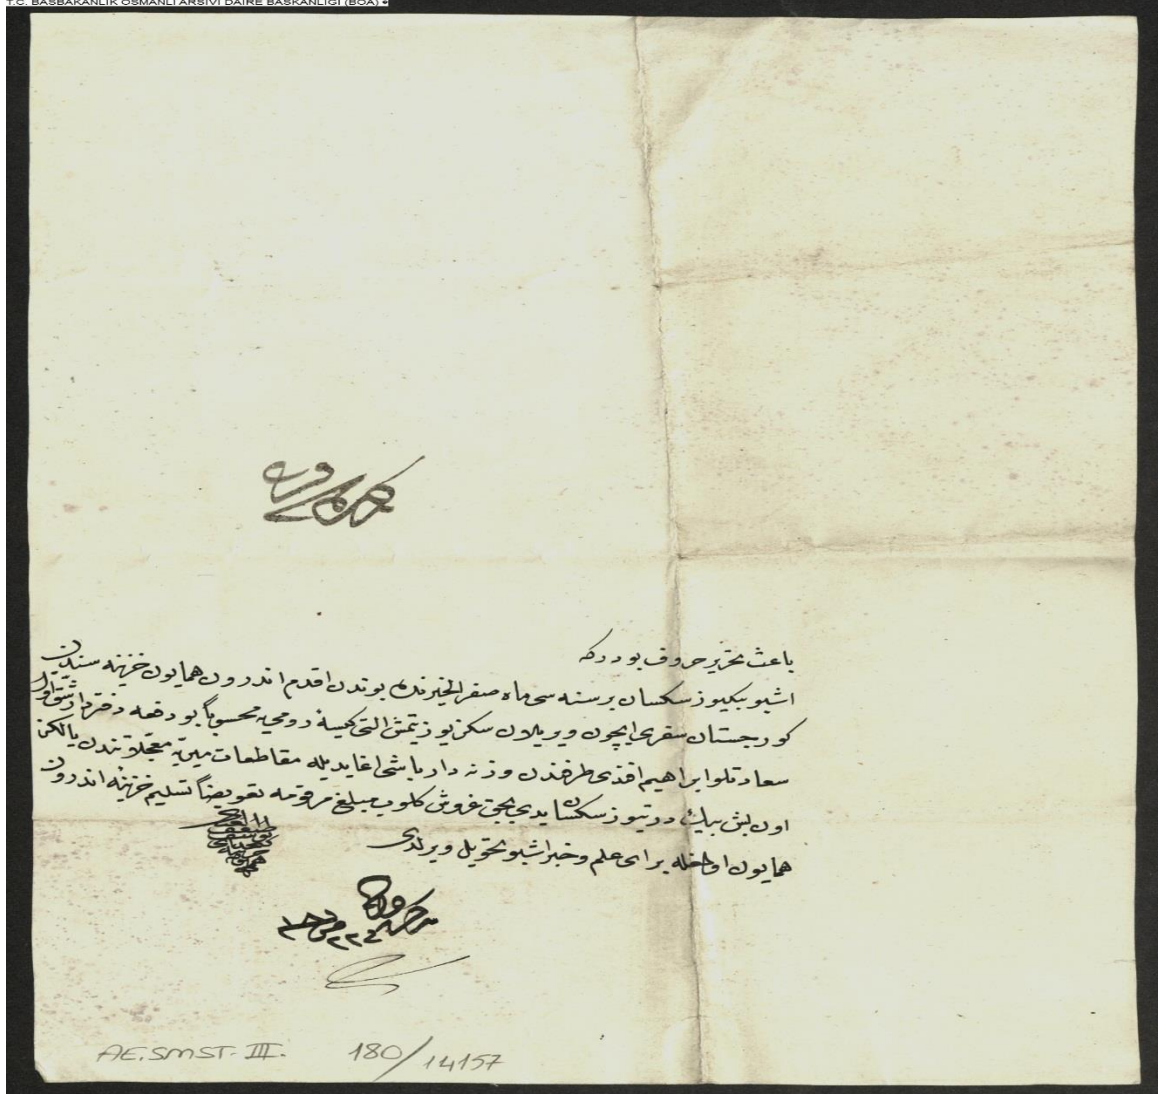 T.C. BAŞBAKANLIK OSMANLI ARŞİVİ DAİRE BAŞKANLIĞI (BOA)
باعث تحریر حروف بودرکه
اشبو بیکیوز سکسان بر سنه سی ماه صفر الخیرنده بوندن اقدم اندرون همایون خزینه سندن
کورجستان سفری ایچون ویریلان سکز یوز یتمش التی کیسه رومی یه محسوباً بو دفعه دفتردار شق اول
سعادتلو ابراهیم افندی طرفندن وزنه دار باشی اغا یدیله مقاطعات میریه معجلاتندن یالکز
اون بش بیک درتیوز سکسان یدی بچق غروش کلوب مبلغ مرقومه تعویضاً تسلیم خزینه اندرون
همایون اولمغله برای علم و خبر اشبو تحویل ویرلدی
AE.SMST.III. 180/14157